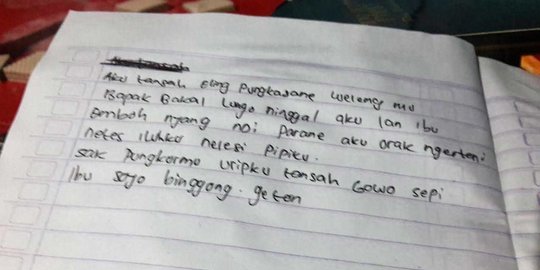 Aku tansah eling pungkasane welinge mu
Bapak Bakal lungo ninggal aku lan ibu
Embah nyang ndi parane aku orak ngerteni
netes iluhku nelesi pipiku.
sak pungkurmu uripku tansah Gowo sepi
Ibu soyo binggong. geten